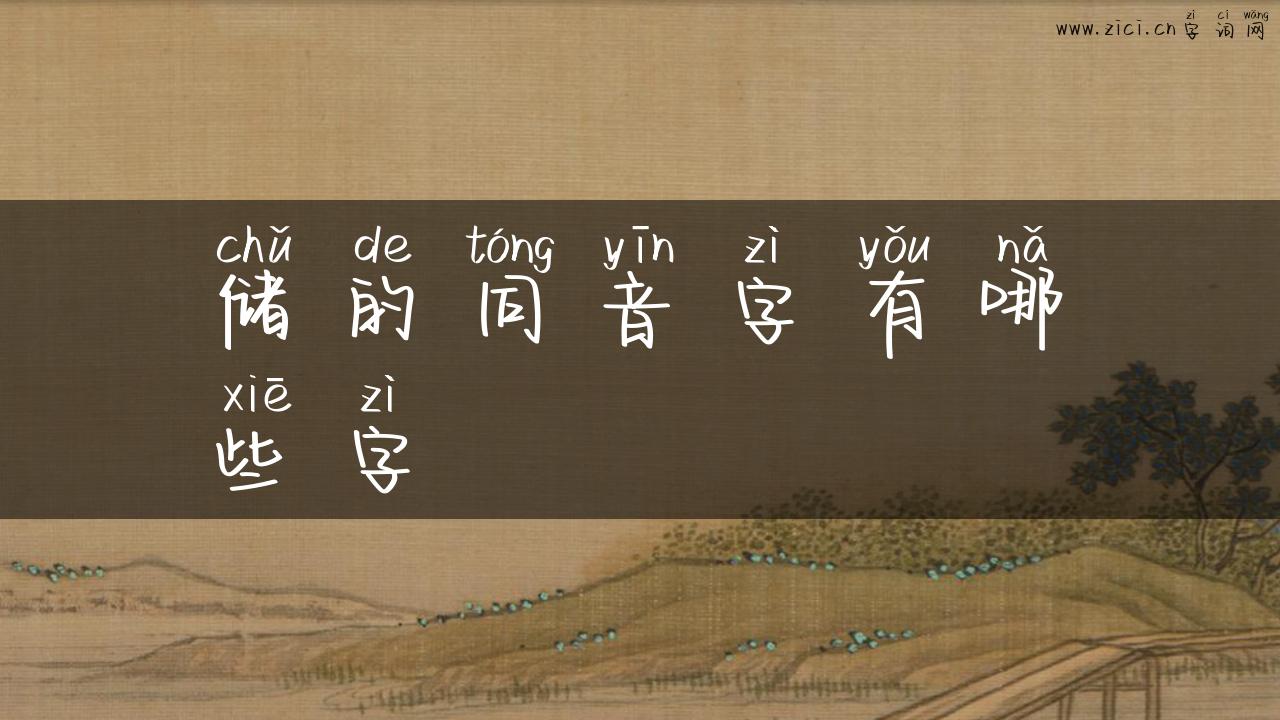 zì cí wǎng
www.zici.cn字词网
chǔ de tóng yīn zì yǒu nǎ
储的同音字有哪
xiē zì
些字